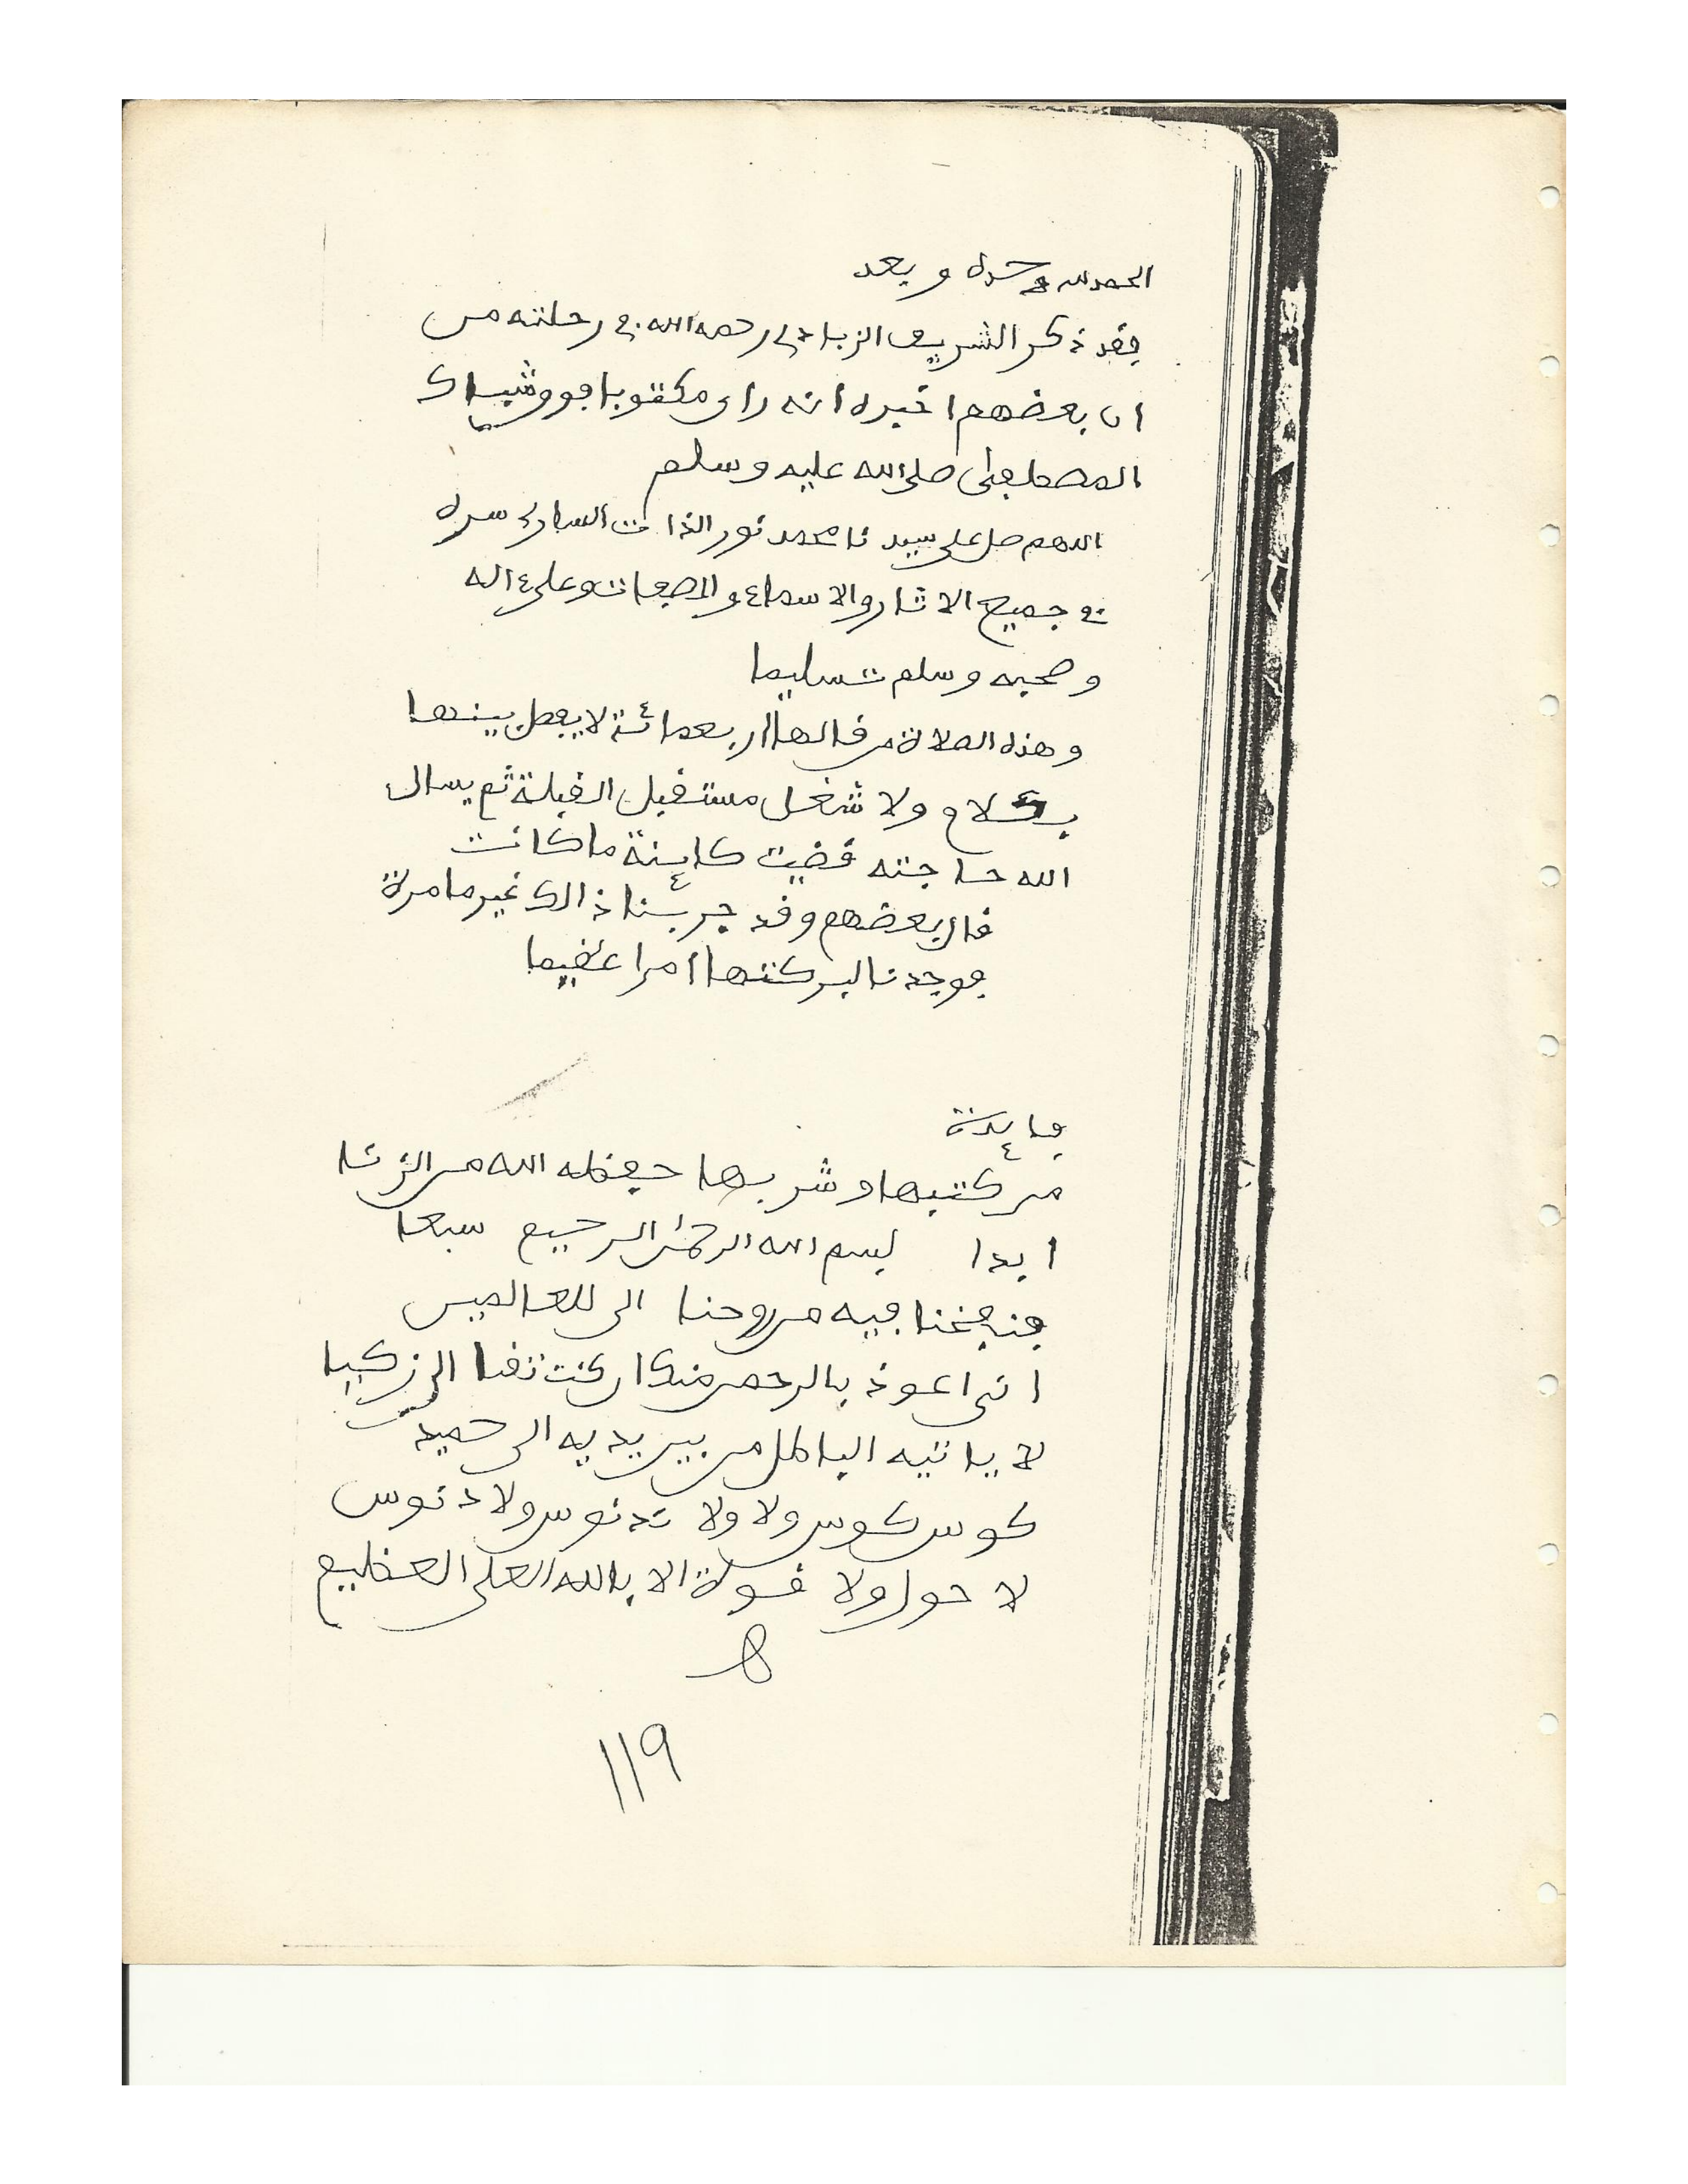 الحمد لله وحده وبعد
فقد ذكر الشريف الزبادي رحمه الله في رحلته من
ان بعضهم اخبره انه راى مكتوبا فوق شباك
المصطفى صلى الله عليه وسلم
اللهم صل على سيدنا محمد نور الذات الساري سره
في جميع الاثار والاسماء والصفات وعلى ءاله
وصحبه وسلم تسليما
وهذه الصلاة من قالها اربعمائة لا يفصل بينها
بكلام ولا شغل مستقبل القبلة ثم يسال
الله حاجته قضيت كاينة ما كانت
قال بعضهم وقد جربنا ذالك غير ما مرة
فوجدنا لبركتها امرا عظيما
فايدة
من كتبها وشربها حفظه الله من الزنا
ابدا بسم الله الرحمن الرحيم سبعا
فنفخنا فيه من روحنا الى للعالمين
اني اعوذ بالرحمن منك ان كنت تقيا الى زكيا
لا ياتيه الباطل من بين يديه الى حميد
كوس كوس ولا ولا تدنوس ولا دنوس
لا حول ولا قوة الا بالله العلي العظيم
اهـ
119